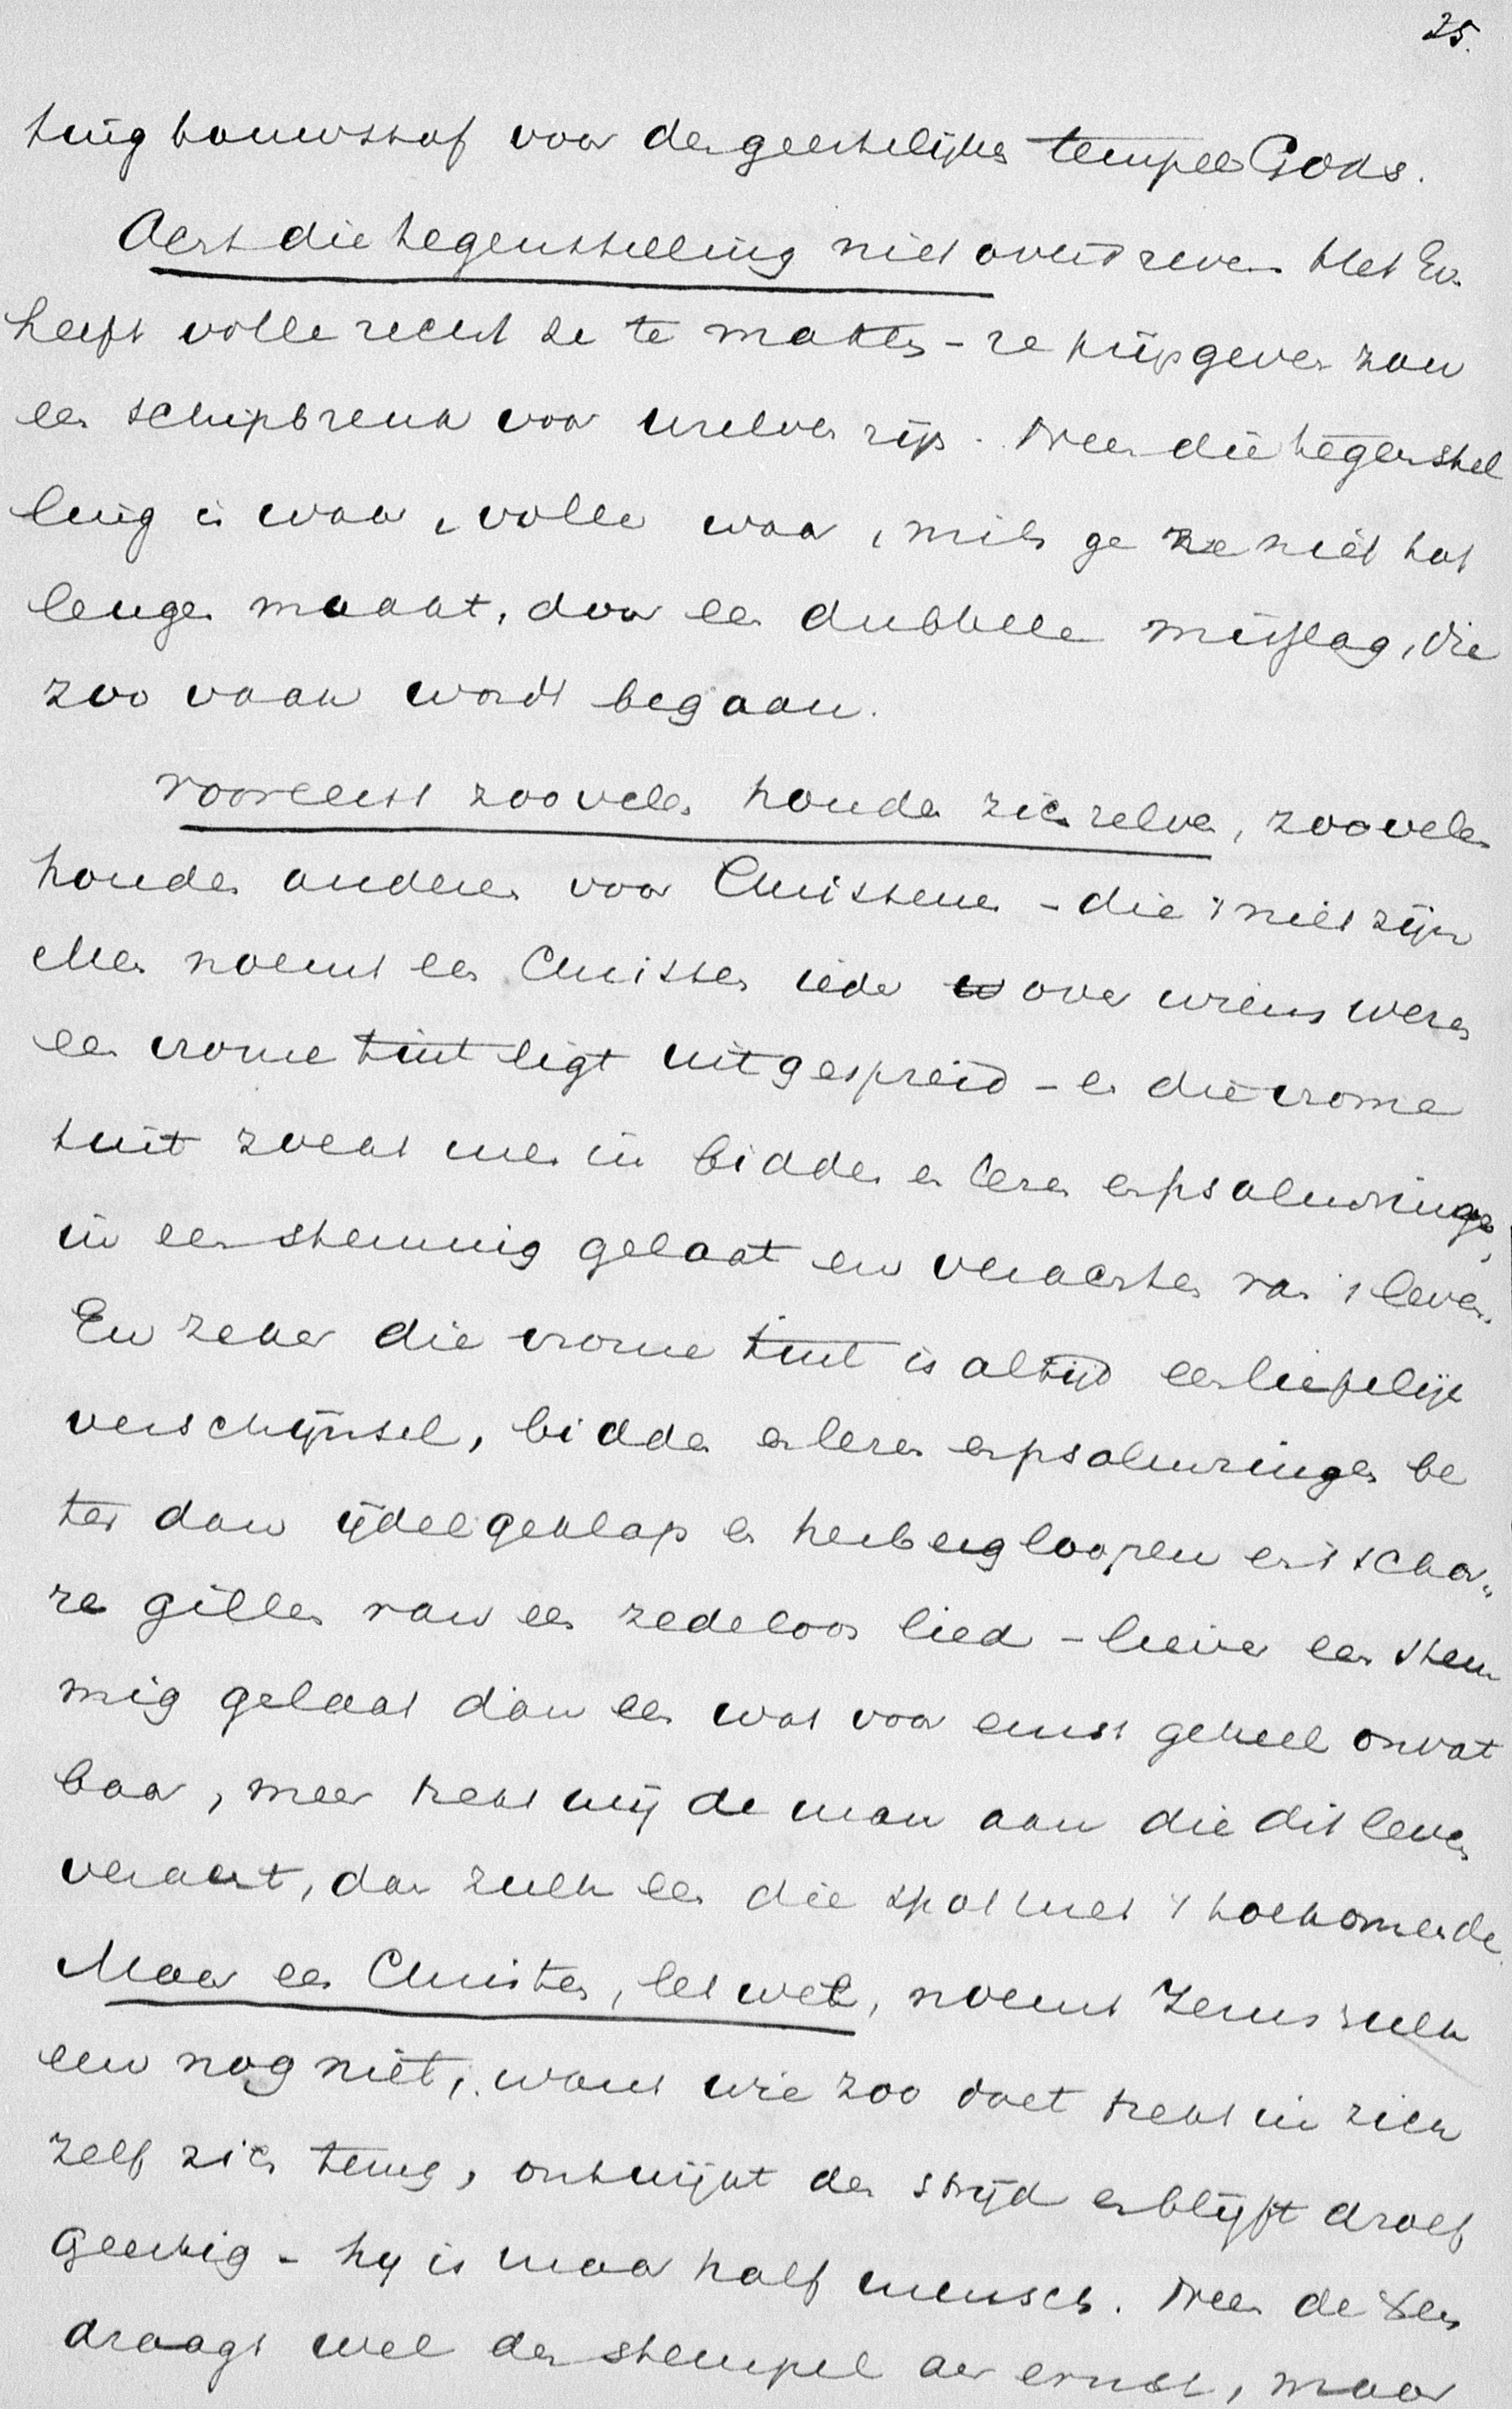 25.
tuig bouwstof voor den geestelijken tempel Gods.
Acht die tegenstelling niet overdreven Het Ev.
heeft volle recht ze te maken - ze prijsgeven zou
een schipbreuk voor uzelven zijn. Neen die tegenstel
ling is waar, volle waar, mits ge ze niet tot
leugen maakt, door een dubbelen misslag, die
zoo vaak wordt begaan.
Vooreerst zoovelen houden zich zelven, zoovelen
houden anderen voor Christenen - die 't niet zijn
Men noemt een Christen ieder over wiens wezen
een vrome tint ligt uitgespreid - en die vrome
tint zoekt men in bidden en lezen en psalmzingen,
in een stemmig gelaat en verachten van 't leven.
En zeker die vrome tint is altijd een liefelijk
verschijnsel, bidden en lezen en psalmzingen be
ter dan ijdel geklap en herbergloopen en 't schor„
re gillen van een zedeloos lied - liever een stem
mig gelaat dan een wat voor ernst geheel onvat
baar, meer trekt mij de man aan die dit leven
veracht, dan zulk een die spot met 't toekomende.
Maar een Christen, let wel, noemt Jezus zulk
een nog niet, want wie zoo doet trekt in zich
zelf zich terug, ontwijkt den strijd en blijft droef
geestig - hij is maar half mensch. Neen de Xen
draagt wel den stempel der ernst, maar